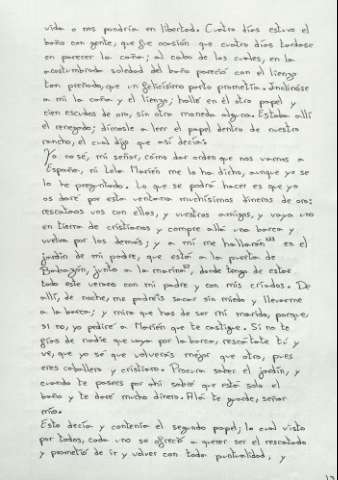 vida o nos pondría en libertad. Cuatro días estuvo el
baño con gente, que fue ocasión que cuatro días tardase
en parecer la caña; al cabo de los cuales, en la
acostumbrada soledad del baño pareció con el lienzo
tan preñado, que un felicísimo parto prometía. Inclinóse
a mí la caña y el lienzo; hallé en él otro papel y
cien escudos de oro, sin otra moneda alguna. Estaba allí
el renegado; dímosle a leer el papel dentro de nuestro
rancho, el cual dijo que así decía:
Yo no sé, mi señor, cómo dar orden que nos vamos a
España, ni Lela Marién me lo ha dicho, aunque yo se
lo he preguntado. Lo que se podrá hacer es que yo
os daré por esta ventana muchísimos dineros de oro:
rescataos vos con ellos, y vuestros amigos, y vaya uno
en tierra de cristianos y compre allá una barca y
vuelva por los demás; y a mí me hallarán en el
jardín de mi padre, que está a la puerta de
Babazón, junto a la marina, donde tengo de estar
todo este verano con mi padre y con mis criados. De
allí, de noche, me podréis sacar sin miedo y llevarme
a la barca; y mira que has de ser mi marido, porque,
si no, yo pediré a Marién que te castigue. Si no te
fías de nadie que vaya por la barca, rescátate tú y
ve, que yo sé que volverás mejor que otro, pues
eres caballero y cristiano. Procura saber el jardín, y
cuando te pasees por ahí sabré que está solo el
baño y te daré mucho dinero. Alá te guarde, señor
mío.
Esto decía y contenía el segundo papel; lo cual visto
por todos, cada uno se ofreció a querer ser el rescatado
y prometió de ir y volver con toda puntualidad, y